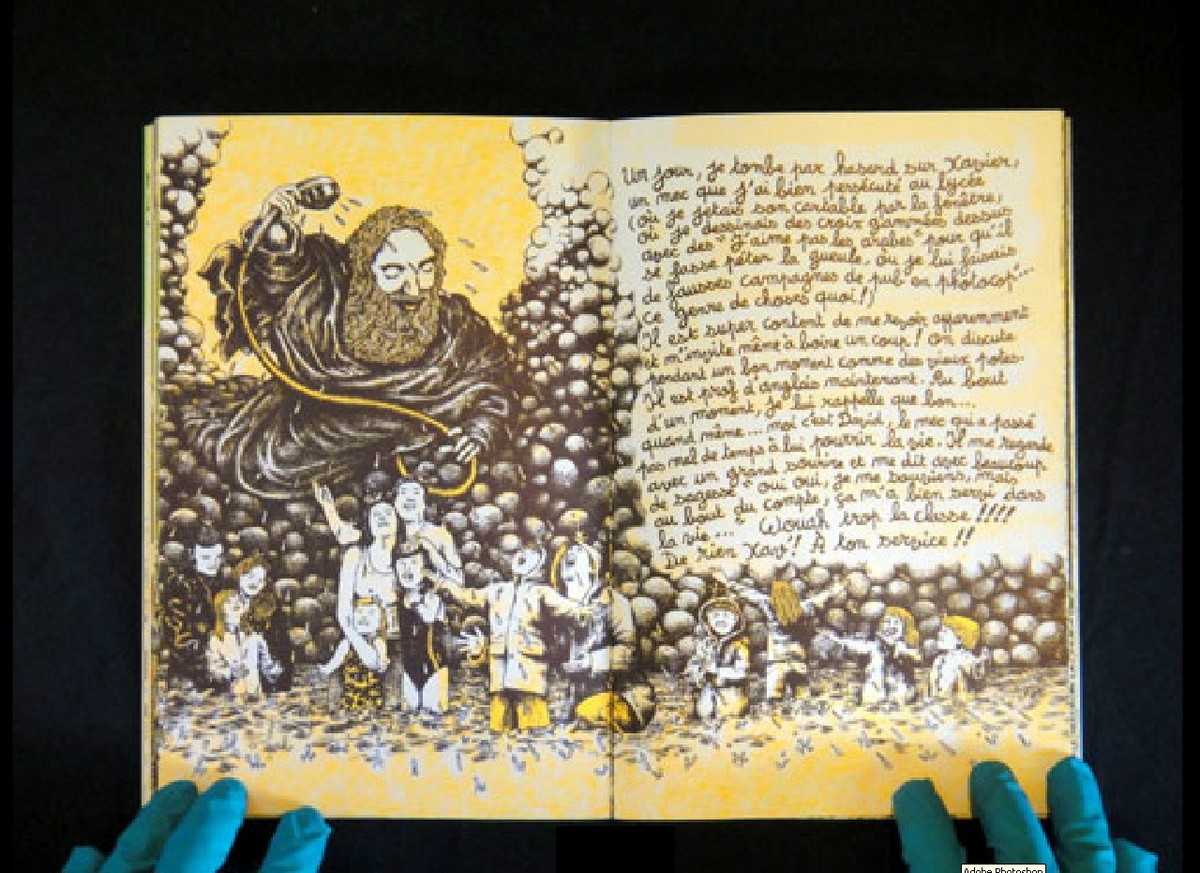 Un jour, je tombe par hasard sur Xavier,
un mec que j'ai bien persécuté au lycée
(où je jetais son cartable par la fenêtre,
où je dessinais des croix gammées dessus
avec des "j'aime pas les arabes" pour qu'il
se fasse péter la gueule. où je lui faisais
de fausses campagnes de pub en photocop'...
ce genre de choses quoi!)
Il est super content de me revoir apparemment
et m'invite même à boire un coup! On discute
pendant un bon moment comme des vieux potes.
Il est prof d'anglais maintenant. Au bout
d'un moment, je lui rappelle que bon...
quand même... moi c'est David, le mec qui a passé
pas mal de temps à lui pourrir la vie. Il me regarde
avec un grand sourire et me dit avec beaucoup
de sagesse "oui oui, je me souviens, mais
au bout du compte, ça m'a bien servi dans
la vie..." Wouah trop la classe!!!!
De rien Xav'! À ton service!!
Adobe Photoshop